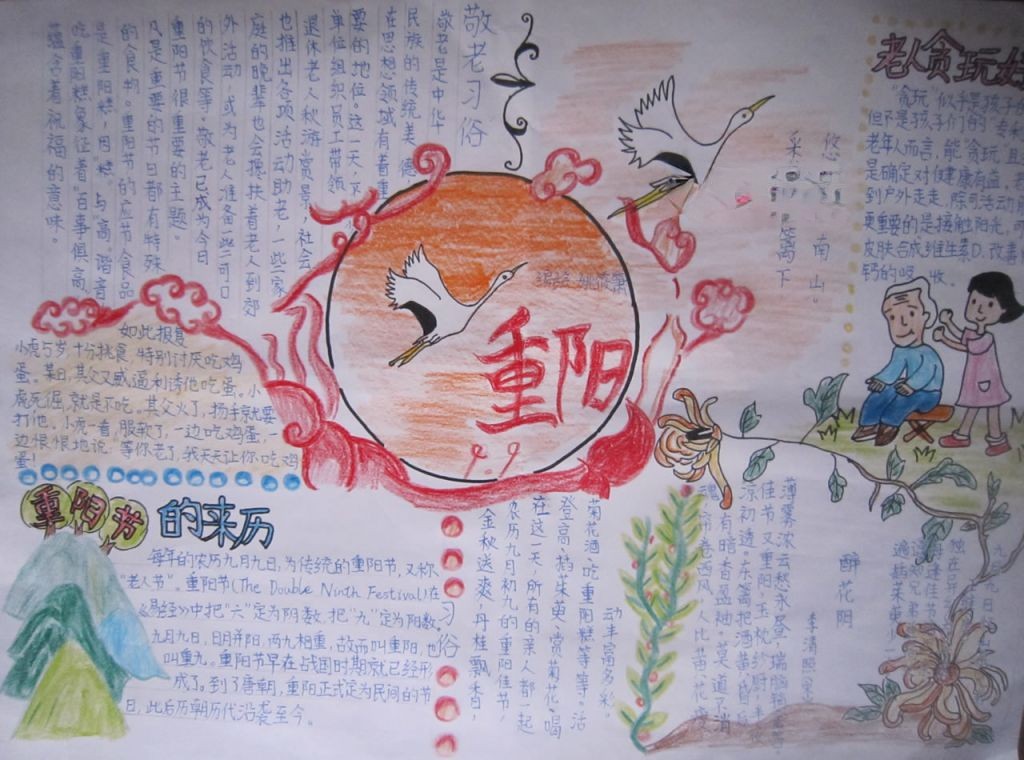 敬老习俗
敬老是中华
民族的传统美德
在思想领域有着重
要的地位。这一天，不
单位组织员工带领
退休老人秋游赏景，社会
也推出各项活动助老，一些家
庭的晚辈也会搀扶着老人到郊
外活动，或为老人准备一些可口
的饮食等。敬老已成为今日
重阳节很重要的主题。
凡是重要的节日都有特殊
的食物。重阳节的应节食品
是重阳糕，因“糕”与“高”谐音
吃重阳糕象征着“百事俱高，
蕴含着祝福的意味。
悠 南山。
采 篱下
老人贪玩好
“贪玩”似乎是孩子
但不是孩子们的“专
老年人而言，能“贪玩”且
是确定对健康有益，
到户外走走，除可活动
更重要的是接触阳光，可
皮肤合成维生素D，改善
钙的吸收。
重阳
9.9
如此报复
小虎5岁，十分挑食，特别讨厌吃鸡
蛋。某日，其父又威逼利诱他吃蛋。小
虎死倔，就是不吃。其父火了，扬手就要
打他。小虎一看，服软了，一边吃鸡蛋，一
边恨恨地说：等你老了，我天天让你吃鸡
蛋！
重阳节的来历
每年的农历九月九日，为传统的重阳节，又称
“老人节”。重阳节(The Double Ninth Festival)在
《易经》中把“六”定为阴数，把“九”定为阳数，
九月九日，日月并阳，两九相重，故而叫重阳，也
叫重九。重阳节早在战国时期就已经形
成了。到了唐朝，重阳正式定为民间的节
日，此后历朝历代沿袭至今。
习俗
金秋送爽，丹桂飘香，
农历九月初九的重阳佳节，
在这一天，所有的亲人都一起
登高“插茱萸”赏菊花”喝
菊花酒”吃重阳糕等等。活
动丰富多彩。
醉花阴
李清照
薄雾浓云愁永昼，瑞脑
佳节又重阳，玉枕纱厨，半夜
凉初透。东篱把酒黄昏后，
有暗香盈袖。莫道不消
魂，帘卷西风，人比黄花瘦
九月九日
独在异
每逢佳节
遍插茱萸少一